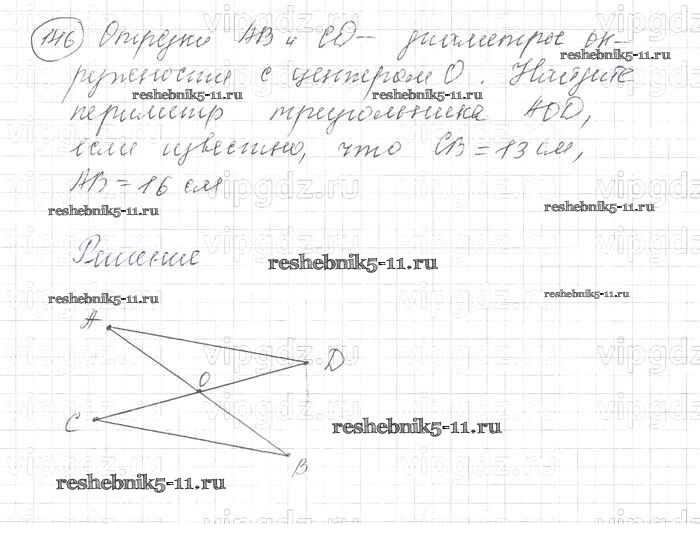 146 Отрезки AB и CD — диаметры ок-
reshebnik5-11.ru
ружности с центром O. Найдите
reshebnik5-11.ru reshebnik5-11.ru
периметр треугольника AOD,
если известно, что CB = 13 см,
AB = 16 см
reshebnik5-11.ru reshebnik5-11.ru
Решение
reshebnik5-11.ru
reshebnik5-11.ru reshebnik5-11.ru
A
vipgdz.ru vipgdz.ru
D
O
C
reshebnik5-11.ru
B
reshebnik5-11.ru